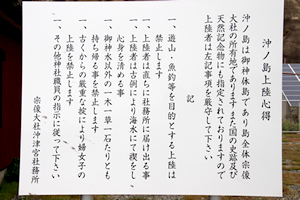 沖ノ島上陸心得
沖ノ島は御神体島であり島全体宗像
大社の所有地でありますまた国の史跡及び
天然記念物にも指定されておりますので
上陸者は左記事項を厳守して下さい
記
一、遊山・魚釣等を目的とする上陸は
禁止します
一、上陸者は直ちに社務所に届け出る事
一、上陸者は古例により海水にて禊をし
心身を清める事
一、御神水以外の一木一草一石たりとも
持ち帰る事を禁止します
一、古くからの厳重な掟により婦女子の
上陸を禁止します
一、その他神社職員の指示に従って下さい
宗像大社沖津宮社務所